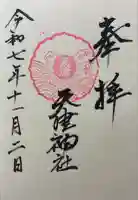 奉拝
神社
令和七年十一月二日